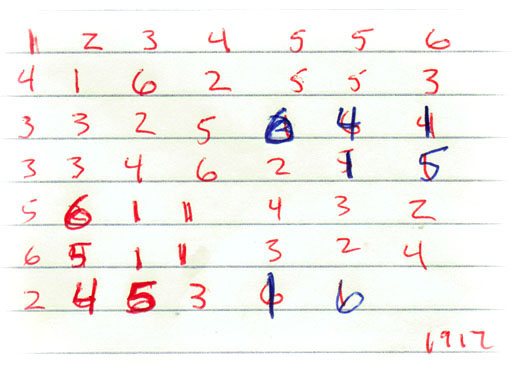 1 2 3 4 5 5 6
4 1 6 2 5 5 3
3 3 2 5 6 4 1
3 3 4 6 2 1 5
5 6 1 1 4 3 2
6 5 1 1 3 2 4
2 4 5 3 1 6
1912